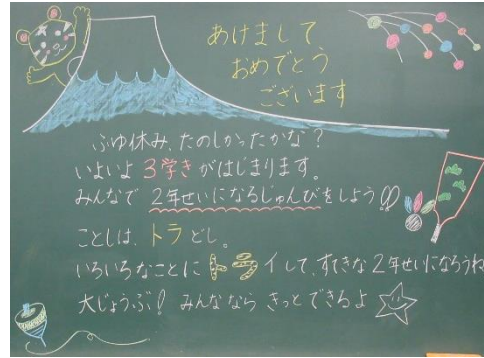 あけまして
おめでとう
ございます
ふゆ休み、たのしかったかな？
いよいよ３学きがはじまります。
みんなで ２年せいになるじゅんびをしよう!!
ことしは、トラどし。
いろいろなことにトライして、すてきな２年せいになろうね
大じょうぶ! みんなならきっとできるよ